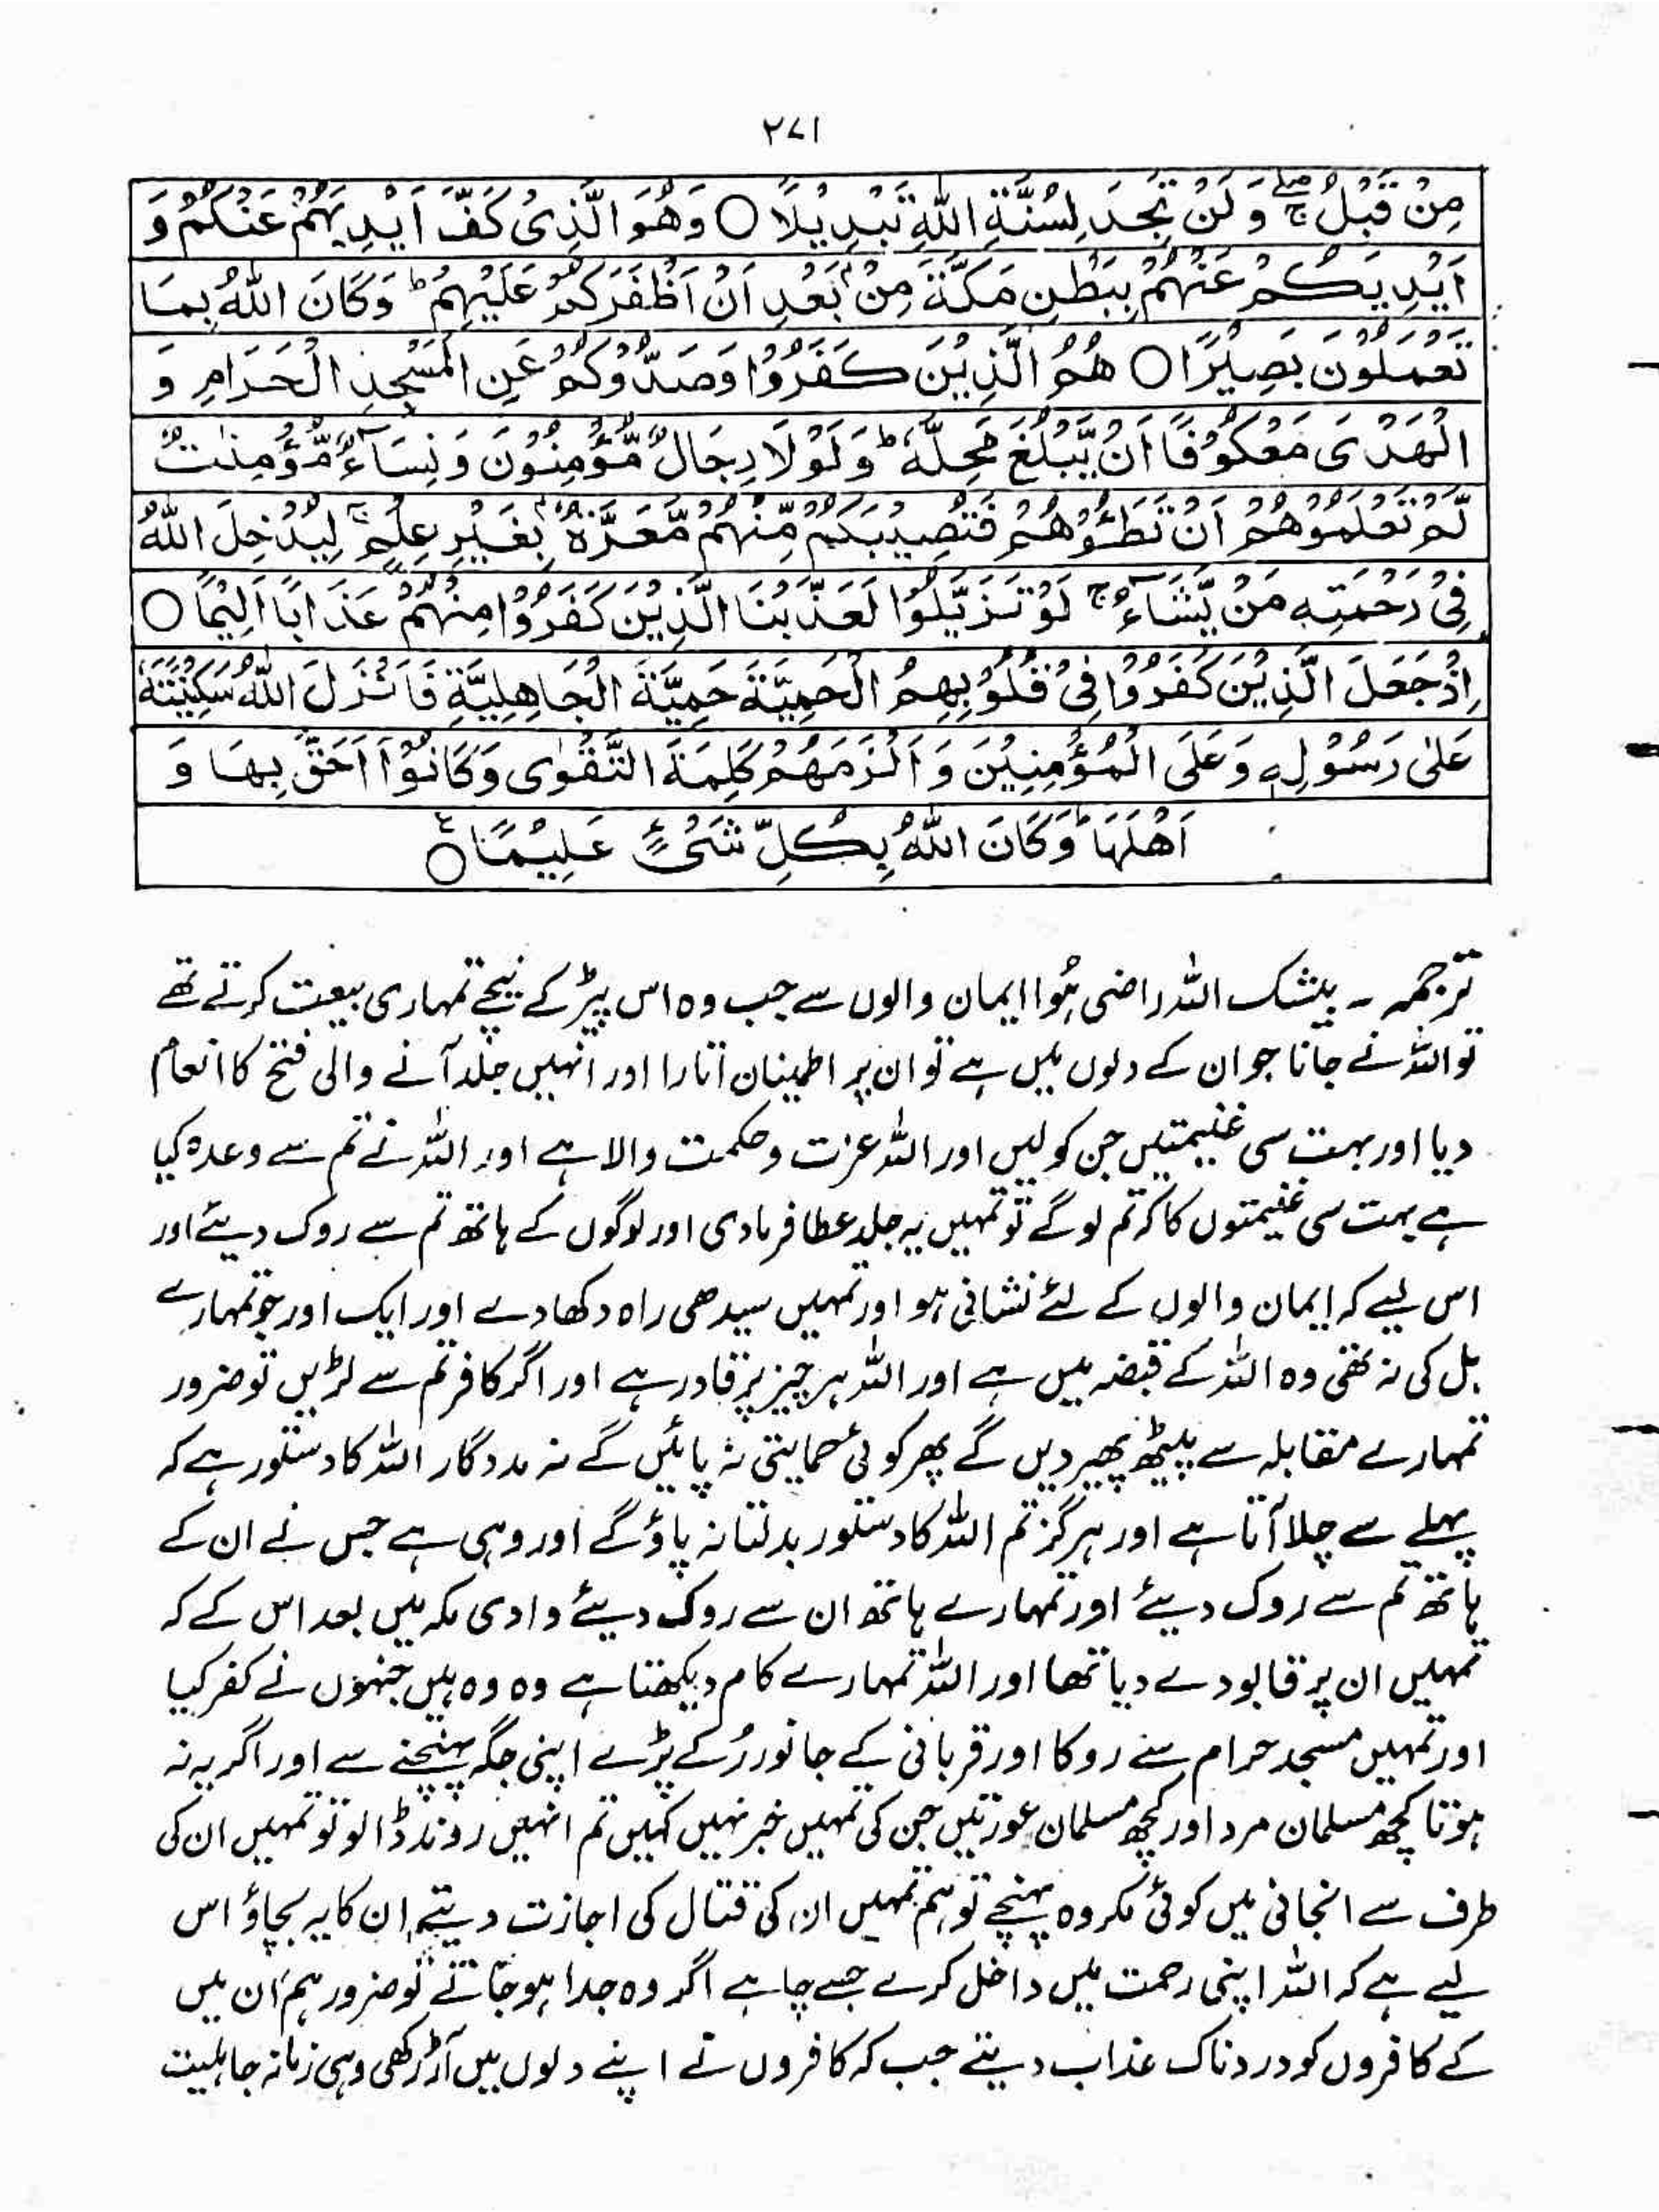 ۲۷۱
مِنْ قَبْلُ ۖۚ وَلَنْ تَجِدَ لِسُنَّةِ اللّٰهِ تَبْدِيْلًا ○ وَهُوَ الَّذِىْ كَفَّ اَيْدِيَهُمْ عَنْكُمْ وَ
اَيْدِيَكُمْ عَنْهُمْ بِبَطْنِ مَكَّةَ مِنْۢ بَعْدِ اَنْ اَظْفَرَكُمْ عَلَيْهِمْ ؕ وَكَانَ اللّٰهُ بِمَا
تَعْمَلُوْنَ بَصِيْرًا ○ هُمُ الَّذِيْنَ كَفَرُوْا وَصَدُّوْكُمْ عَنِ الْمَسْجِدِ الْحَرَامِ وَ
الْهَدْىَ مَعْكُوْفًا اَنْ يَّبْلُغَ مَحِلَّهٗ ؕ وَلَوْلَا رِجَالٌ مُّؤْمِنُوْنَ وَنِسَآءٌ مُّؤْمِنٰتٌ
لَّمْ تَعْلَمُوْهُمْ اَنْ تَطَـُٔوْهُمْ فَتُصِيْبَكُمْ مِّنْهُمْ مَّعَرَّةٌۢ بِغَيْرِ عِلْمٍ ۚ لِيُدْخِلَ اللّٰهُ
فِىْ رَحْمَتِهٖ مَنْ يَّشَآءُ ۚ لَوْ تَزَيَّلُوْا لَعَذَّبْنَا الَّذِيْنَ كَفَرُوْا مِنْهُمْ عَذَابًا اَلِيْمًا ○
اِذْ جَعَلَ الَّذِيْنَ كَفَرُوْا فِىْ قُلُوْبِهِمُ الْحَمِيَّةَ حَمِيَّةَ الْجَاهِلِيَّةِ فَاَنْزَلَ اللّٰهُ سَكِيْنَتَهٗ
عَلٰى رَسُوْلِهٖ وَعَلَى الْمُؤْمِنِيْنَ وَاَلْزَمَهُمْ كَلِمَةَ التَّقْوٰى وَكَانُوْٓا اَحَقَّ بِهَا وَ
اَهْلَهَا ؕ وَكَانَ اللّٰهُ بِكُلِّ شَىْءٍ عَلِيْمًا ○
ترجمہ ۔ بیشک اللہ راضی ہُوا ایمان والوں سے جب وہ اس پیڑ کے نیچے تمہاری بیعت کرتے تھے
تو اللہ نے جانا جو ان کے دلوں میں ہے تو ان پر اطمینان اتارا اور انہیں جلد آنے والی فتح کا انعام
دیا اور بہت سی غنیمتیں جن کو لیں اور اللہ عزت و حکمت والا ہے اور اللہ نے تم سے وعدہ کیا
ہے بہت سی غنیمتوں کا کہ تم لو گے تو تمہیں یہ جلد عطا فرمادی اور لوگوں کے ہاتھ تم سے روک دیئے اور
اس لیے کہ ایمان والوں کے لئے نشانی ہو اور تمہیں سیدھی راہ دکھا دے اور ایک اور جو تمہارے
بل کی نہ تھی وہ اللہ کے قبضہ میں ہے اور اللہ ہر چیز پر قادر ہے اور اگر کافر تم سے لڑیں تو ضرور
تمہارے مقابلہ سے پیٹھ پھیر دیں گے پھر کوئی حمایتی نہ پائیں گے نہ مددگار اللہ کا دستور ہے کہ
پہلے سے چلا آتا ہے اور ہرگز تم اللہ کا دستور بدلتا نہ پاؤ گے اور وہی ہے جس نے ان کے
ہاتھ تم سے روک دیئے اور تمہارے ہاتھ ان سے روک دیئے وادی مکہ میں بعد اس کے کہ
تمہیں ان پر قابو دے دیا تھا اور اللہ تمہارے کام دیکھتا ہے وہ وہ ہیں جنہوں نے کفر کیا
اور تمہیں مسجد حرام سے روکا اور قربانی کے جانور رُکے پڑے اپنی جگہ پہنچنے سے اور اگر یہ نہ
ہوتا کچھ مسلمان مرد اور کچھ مسلمان عورتیں جن کی تمہیں خبر نہیں کہیں تم انہیں روند ڈالو تو تمہیں ان کی
طرف سے انجانی میں کوئی مکروہ پہنچے تو ہم تمہیں ان کی قتال کی اجازت دیتے ان کا یہ بچاؤ اس
لیے ہے کہ اللہ اپنی رحمت میں داخل کرے جسے چاہے اگر وہ جدا ہو جاتے تو ضرور ہم ان میں
کے کافروں کو دردناک عذاب دیتے جب کہ کافروں نے اپنے دلوں میں آڑ رکھی وہی زمانہ جاہلیت